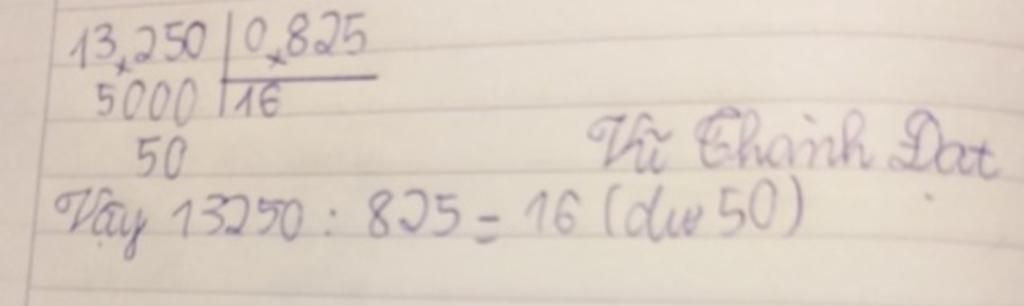 13,250 | 0,825
5000 | 16
50
Vũ Thành Đạt
Vậy 13250 : 825 = 16 (dư 50)